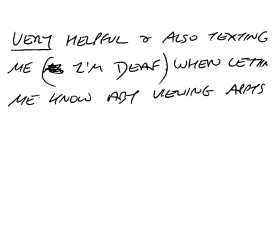 VERY HELPFUL & ALSO TEXTING
ME ( I'M DEAF) WHEN LETTIN
ME KNOW ABT VIEWING APPTS